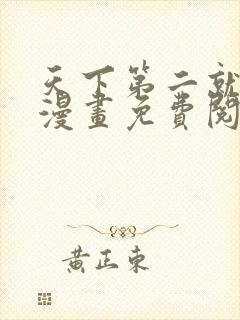 天下第二就
漫畫免費閱
黃正東